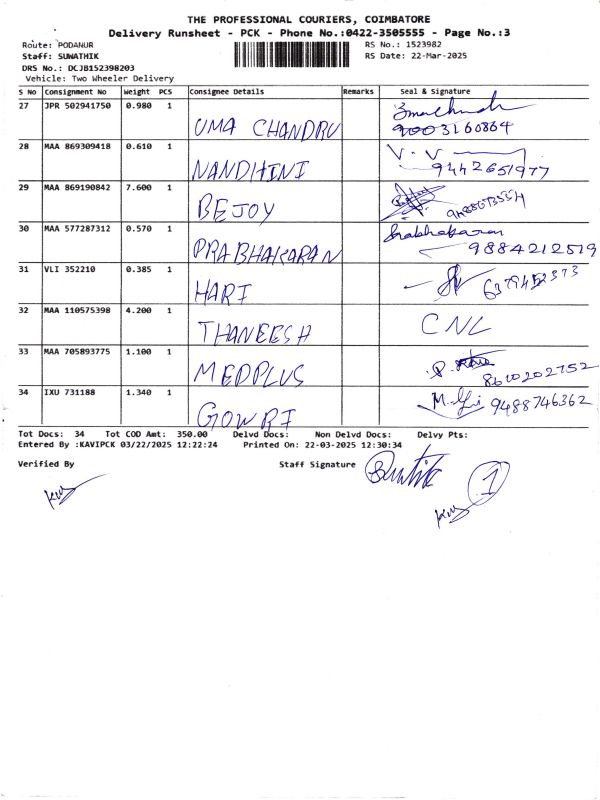 THE PROFESSIONAL COURIERS, COIMBATORE
Delivery Runsheet - PCK - Phone No.:0422-3505555 - Page No.:3
Route: PODANUR RS No.: 1523982
Staff: SUWATHIK RS Date: 22-Mar-2025
DRS No.: DCJB152398203
Vehicle: Two Wheeler Delivery
S No Consignment No Weight PCS Consignee Details Remarks Seal & Signature
27 JPR 502941750 0.980 1 UMA CHANDRU 9003160864
28 MAA 869309418 0.610 1 NANDHINI V. V 9442651977
29 MAA 869190842 7.600 1 BEJOY
30 MAA 577287312 0.570 1 PRABHAKARAN Prabhakaran 9884212519
31 VLI 352210 0.385 1 HARI
32 MAA 110575398 4.200 1 THANEESH CNL
33 MAA 705893775 1.100 1 MEDPLUS 8610202752
34 IXU 731188 1.340 1 GOWRI 9488746362
Tot Docs: 34 Tot COD Amt: 350.00 Delvd Docs: Non Delvd Docs: Delvy Pts:
Entered By :KAVIPCK 03/22/2025 12:22:24 Printed On: 22-03-2025 12:30:34
Verified By Staff Signature
1